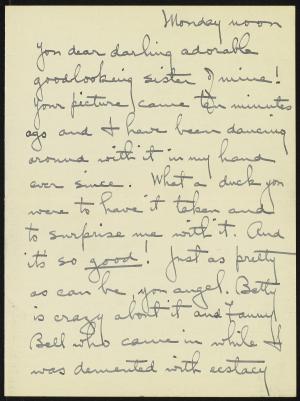 Monday noon
You dear darling adorable
goodlooking sister o' mine!
Your picture came ten minutes
ago and I have been dancing
around with it in my hand
ever since. What a duck you
were to have it taken and
to surprise me with it. And
it's so good! Just as pretty
as can be, you angel. Betty
is crazy about it and Fanny
Bell who came in while I
was demented with ecstacy